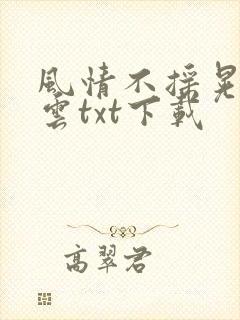 風情不摇晃
雲txt下載
高翠君